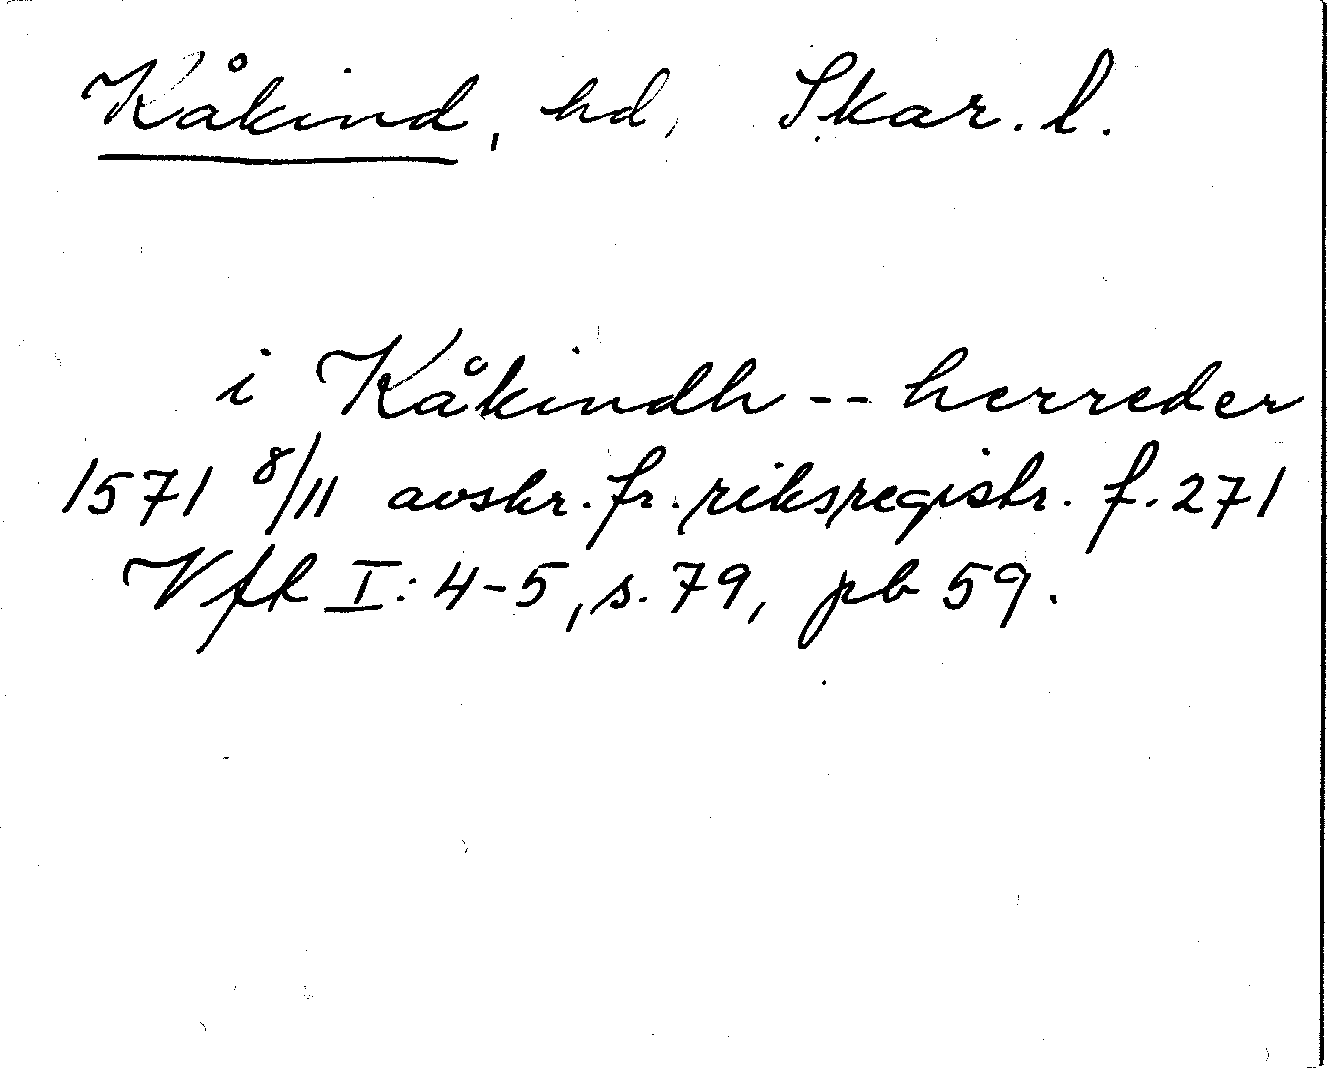 Kåkind, hd, Skar. l.
i Kåkindh -- herreder
1571 8/11 avskr. fr. riksregistr. f. 271
Vfk I: 4-5, s. 79, pb 59.